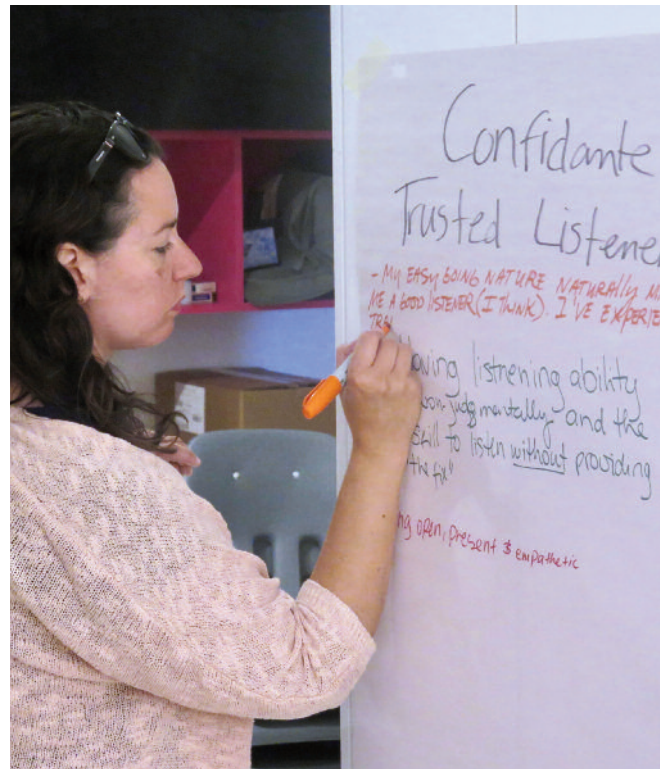 Confidante
Trusted Listener
- MY EASY GOING NATURE NATURALLY
ME A GOOD LISTENER (I THINK). I'VE
listnening ability
non-judgmentally and the
skill to listen without providing
"the fix"
open, present & empathetic